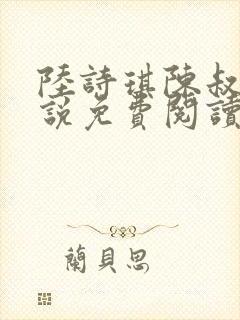 陸詩琪陳叔
說免費閱讀
蘭貝思